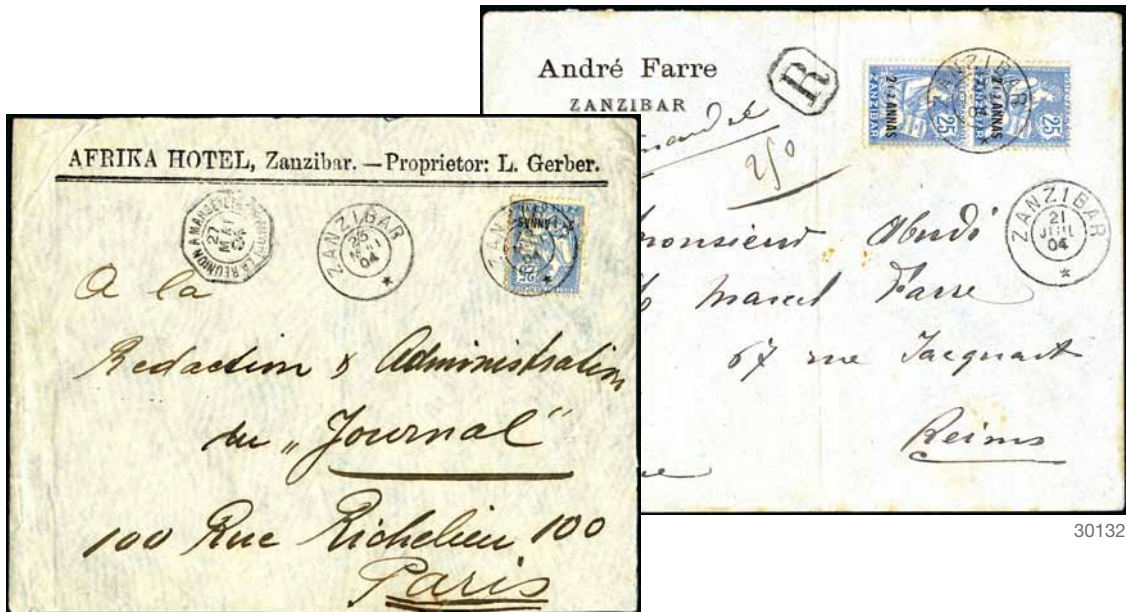 AFRIKA HOTEL, Zanzibar. — Proprietor: L. Gerber.
LA REUNION A MARSEILLE
27
MAI
04
ZANZIBAR
25
MAI
04
ZANZIBAR
04
2½ ANNAS
25
A la
Redaction & Administration
du „Journal“
100 Rue Richelieu 100
Paris
André Farre
ZANZIBAR
R
250
ZANZIBAR
2½ ANNAS
25
ZANZIBAR
2½ ANNAS
25
ZANZIBAR
04
ZANZIBAR
21
JUIL
04
Monsieur
Marcel Farre
67 rue Jacquart
Reims
30132